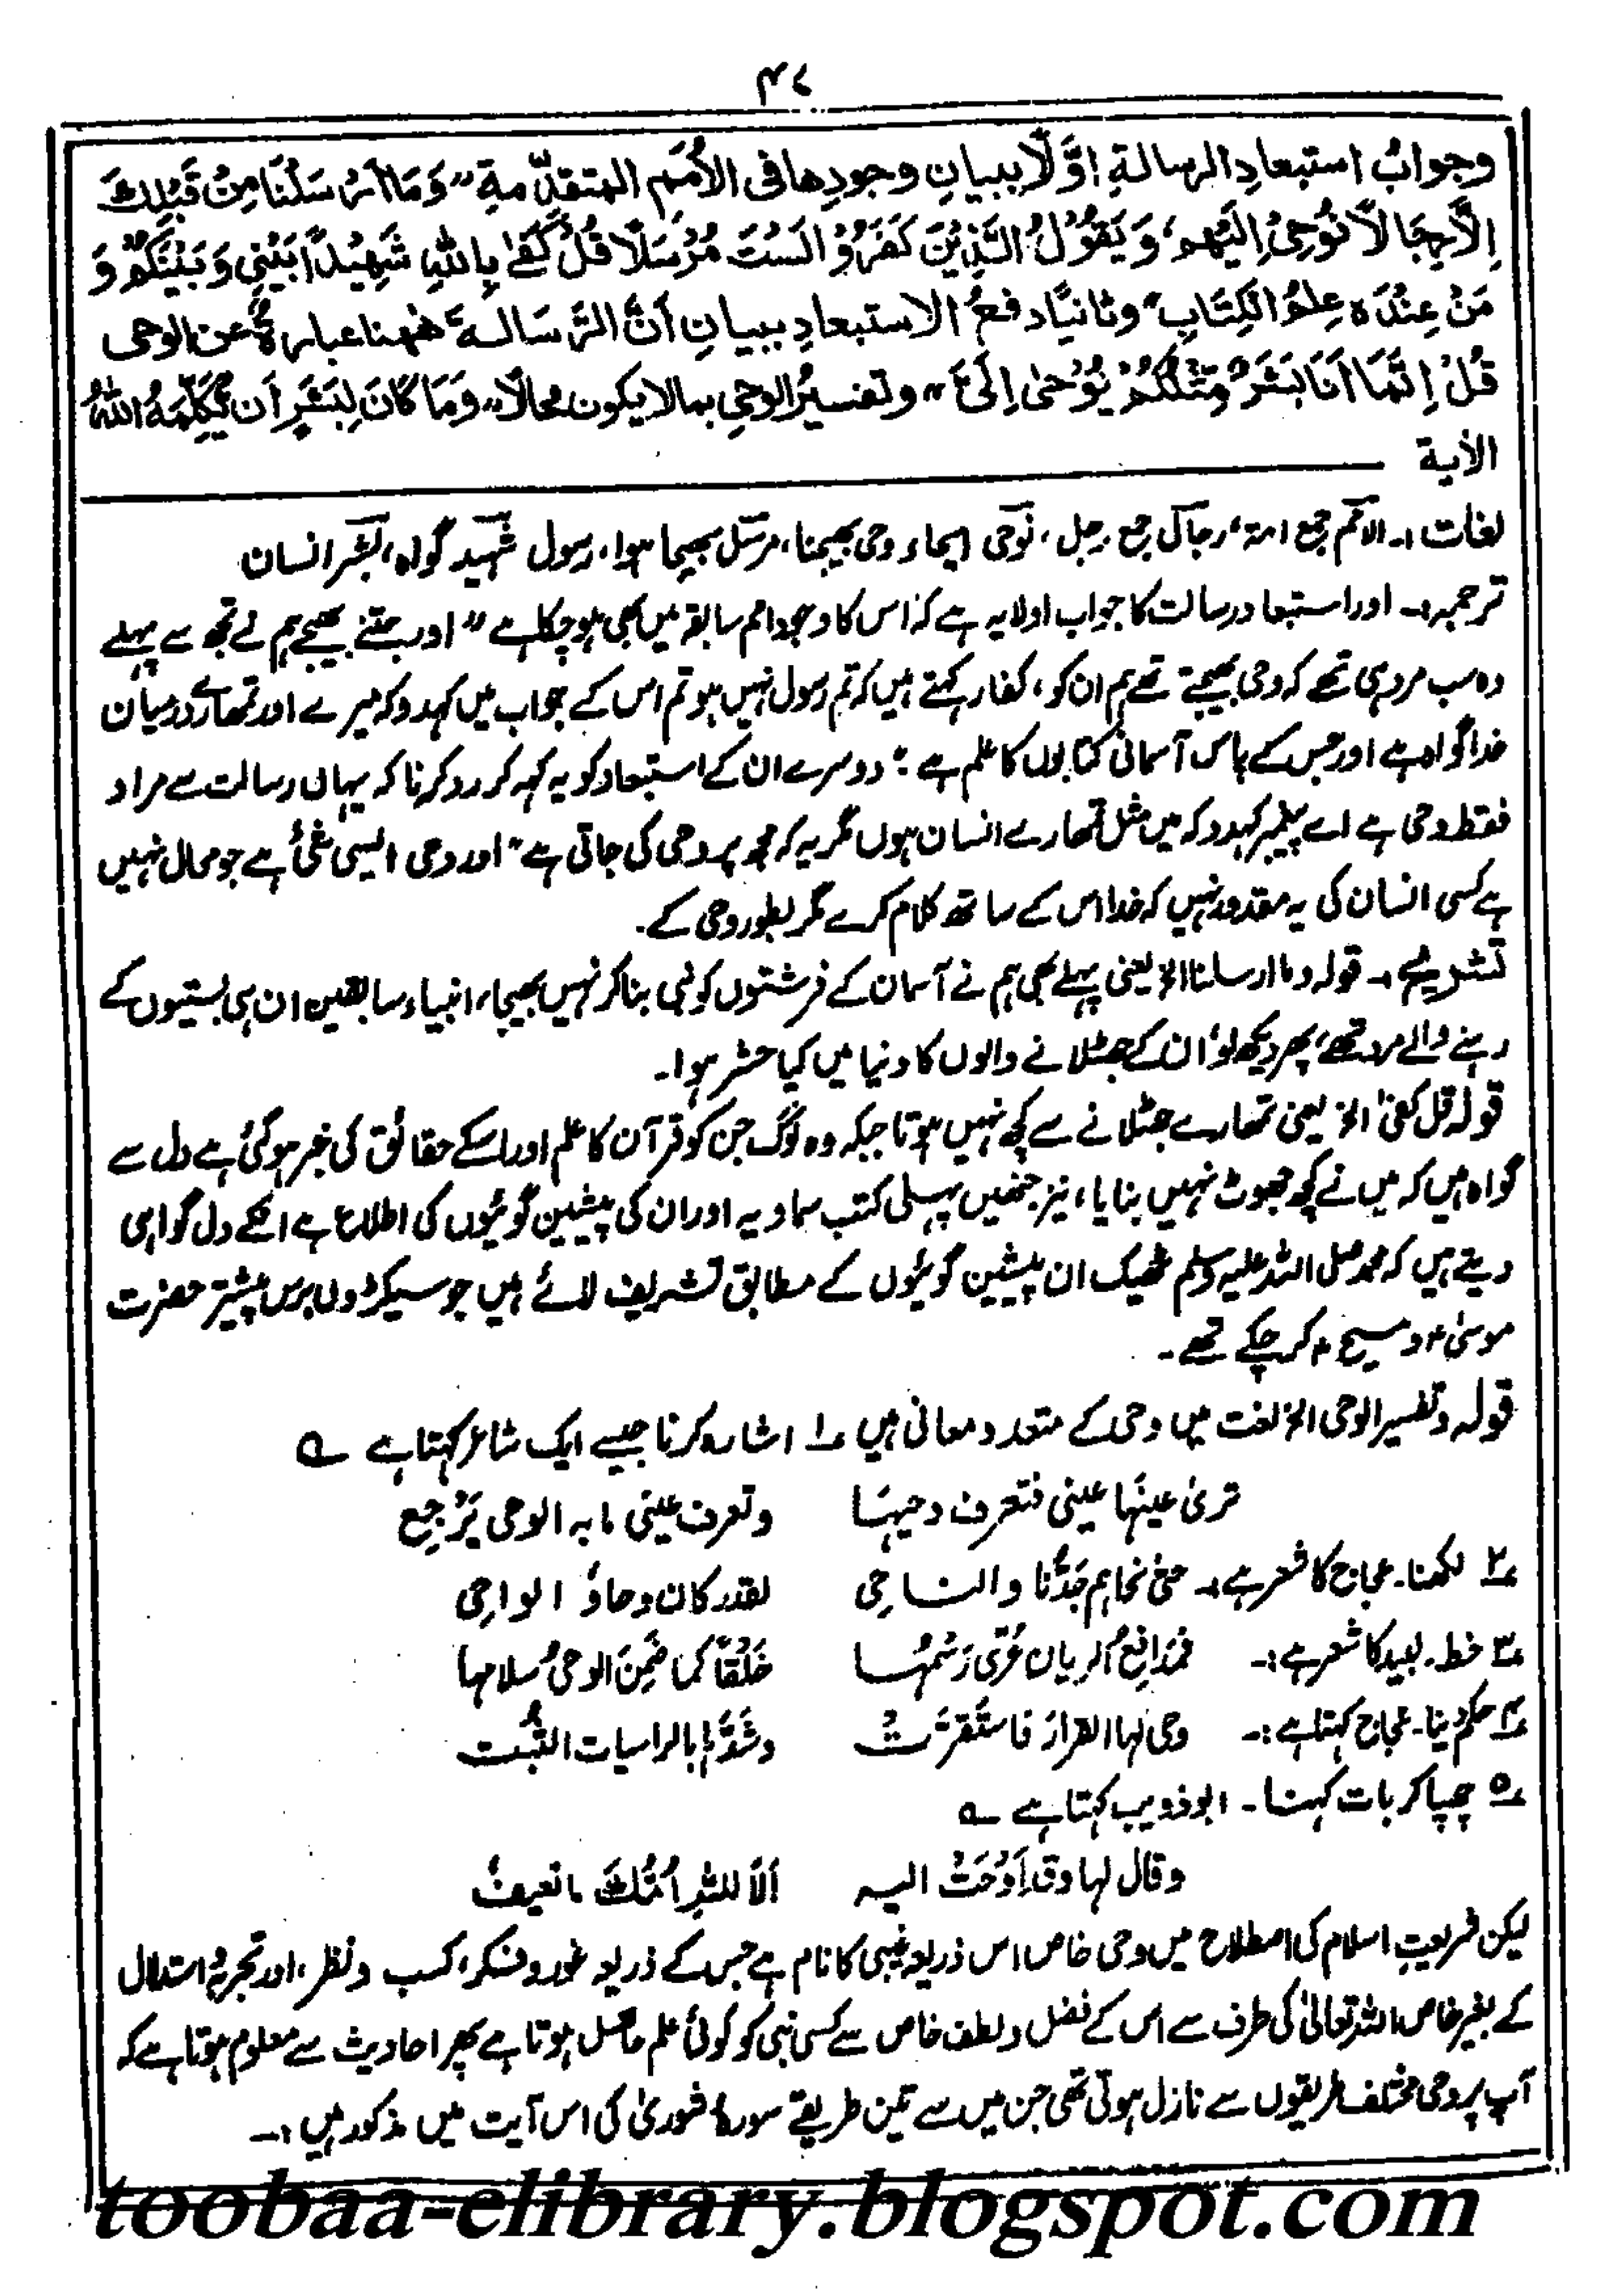 ۴۷
وجوابُ استبعادِ الرسالةِ اوَّلًا ببیانِ وجودِها فی الاُمَمِ المتقدِّمةِ "وَمَا اَرْسَلْنَا مِنْ قَبْلِكَ
اِلَّا رِجَالًا نُوْحِیْ اِلَیْهِم، وَیَقُوْلُ الَّذِیْنَ كَفَرُوْا لَسْتَ مُرْسَلًا قُلْ كَفٰی بِاللهِ شَهِیْدًا بَیْنِیْ وَبَیْنَكُمْ وَ
مَنْ عِنْدَهٗ عِلْمُ الْكِتَابِ" وثانیًا دفعُ الاستبعادِ ببیانِ أنَّ الرَّسَالةَ ههنا عبارةٌ عن الوحی
قُلْ اِنَّمَا اَنَا بَشَرٌ مِّثْلُكُمْ یُوْحٰی اِلَیَّ" وتفسیرُ الوحیِ بمالا یکون محالًا "وَمَا كَانَ لِبَشَرٍ اَن یُّكَلِّمَهُ اللهُ
الاٰیة
لغات :۔ الاُمَم جمع امۃ، رجالًا جمع رجل، نُوحی ایحاء وحی بھیجنا، مرسَل بھیجا ہوا، رسول شَہِید گواہ، بَشَر انسان
ترجمہ :۔ اور استبعاد رسالت کا جواب اولا یہ ہے کہ اس کا وجود امم سابقہ میں بھی ہو چکا ہے "اور جتنے بھیجے ہم نے تجھ سے پہلے
وہ سب مرد ہی تھے کہ وحی بھیجتے تھے ہم ان کو، کفار کہتے ہیں کہ تم رسول نہیں ہو تم اس کے جواب میں کہدو کہ میرے اور تمھارے درمیان
خدا گواہ ہے اور جس کے پاس آسمانی کتابوں کا علم ہے؛ دوسرے ان کے استبعاد کو یہ کہہ کر رد کرنا کہ یہاں رسالت سے مراد
فقط وحی ہے اے پیغمبر کہدو کہ میں مثل تمھارے انسان ہوں مگر یہ کہ مجھ پر وحی کی جاتی ہے" اور وحی ایسی شئ ہے جو محال نہیں
ہے کسی انسان کی یہ مقدور نہیں کہ خدا اس کے ساتھ کلام کرے مگر بطور وحی کے۔
تشریح :۔ قولہ وما ارسلنا الخ یعنی پہلے بھی ہم نے آسمان کے فرشتوں کو نبی بنا کر نہیں بھیجا، انبیاء سابقین ان ہی بستیوں کے
رہنے والے مرد تھے، پھر دیکھ لو ان کے جھٹلانے والوں کا دنیا میں کیا حشر ہوا۔
قولہ قل کفیٰ الخ یعنی تمھارے جھٹلانے سے کچھ نہیں ہوتا جبکہ وہ لوگ جن کو قرآن کا علم اور اسکے حقائق کی خبر ہو گئی ہے دل سے
گواہ ہیں کہ میں نے کچھ جھوٹ نہیں بنایا، نیز جنھیں پہلی کتب سماویہ اور ان کی پیشین گوئیوں کی اطلاع ہے انکے دل گواہی
دیتے ہیں کہ محمد صلی اللہ علیہ وسلم ٹھیک ان پیشین گوئیوں کے مطابق تشریف لائے ہیں جو سیکڑوں برس پیشتر حضرت
موسیٰؑ و مسیحؑ کر چکے تھے۔
قولہ وتفسیر الوحی الخ لغت میں وحی کے متعدد معانی ہیں ۱؎ اشارہ کرنا جیسے ایک شاعر کہتا ہے ؎
تریٰ عینَہا عینی فتعرف وحیہَا     وتعرف عینی مابہ الوحی یَرْجِع
۲؎ لکھنا۔ عجاج کا شعر ہے :۔ حتیٰ نحاہم جَدُّنَا والناحِی     لقد کان وحاہُ الواحِی
۳؎ خط۔ لبید کا شعر ہے :۔ فَمَدَافِعُ الریان عُرِّیَ رَسْمُہا     خَلَقًا کما ضَمِنَ الوحیَ سِلامہا
۴؎ حکم دینا۔ عجاج کہتا ہے :۔ وحی لہا القرارَ فاستَقَرَّتْ     وشَدَّہا بالراسیات الثُّبَّت
۵؎ چھپا کر بات کہنا۔ ابو ذویب کہتا ہے ؎
وقال لہا وقد اَوْحَتْ الیہ     اَلَا للہِ اُمُّكَ ما تعیفُ
لیکن شریعتِ اسلام کی اصطلاح میں وحی خاص اس ذریعہ غیبی کا نام ہے جس کے ذریعہ غور و فکر، کسب و نظر، اور تجربہ و استدلال
کے بغیر خاص اللہ تعالیٰ کی طرف سے اس کے فضل و لطف خاص سے کسی نبی کو کوئی علم حاصل ہوتا ہے پھر احادیث سے معلوم ہوتا ہے کہ
آپ پر وحی مختلف طریقوں سے نازل ہوتی تھی جن میں سے تین طریقے سورۂ شوریٰ کی اس آیت میں مذکور ہیں :۔
toobaa-elibrary.blogspot.com